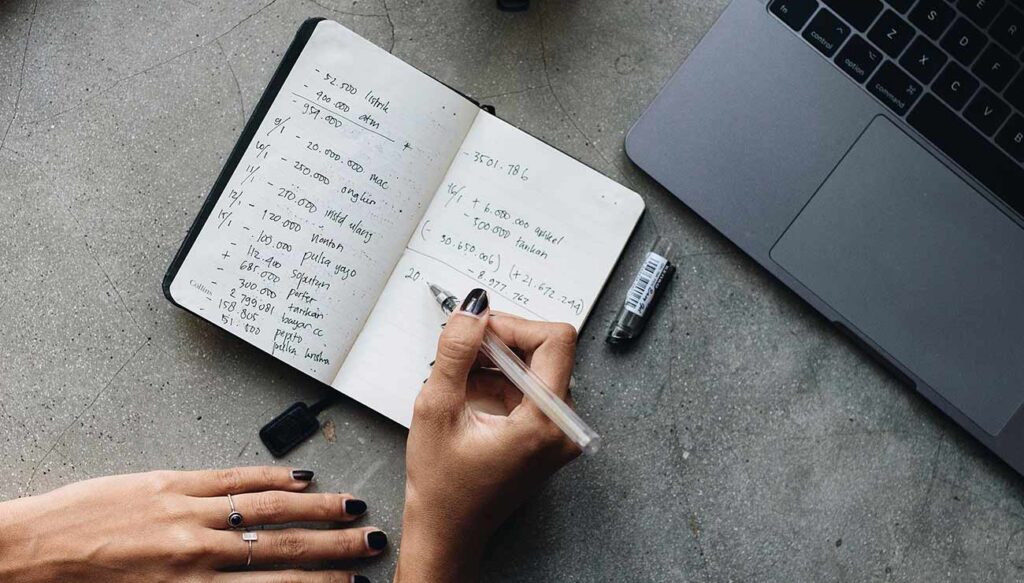 - 52.500 listrik
- 400.000 atm
- 959.000 *
9/1 - 20.000.000 mac
10/1 - 250.000 ongkir
11/1 - 270.000 instal ulang
12/1 - 120.000 nonton
15/1 - 100.000 pulsa yayo
+ 112.400 sopotun
+ 685.000 porter
- 300.000 tarikan
- 2.799.081 bayar cc
- 158.805 pepito
- 51.500 pulsa
Collins
- 3501.786
16/1 + 6.000.000 artikel
- 500.000 tarikan
(- 30.650.006) (+ 21.672.244)
- 8.977.762
20
control
option
command
Z
X
C
V
S
D
F
R